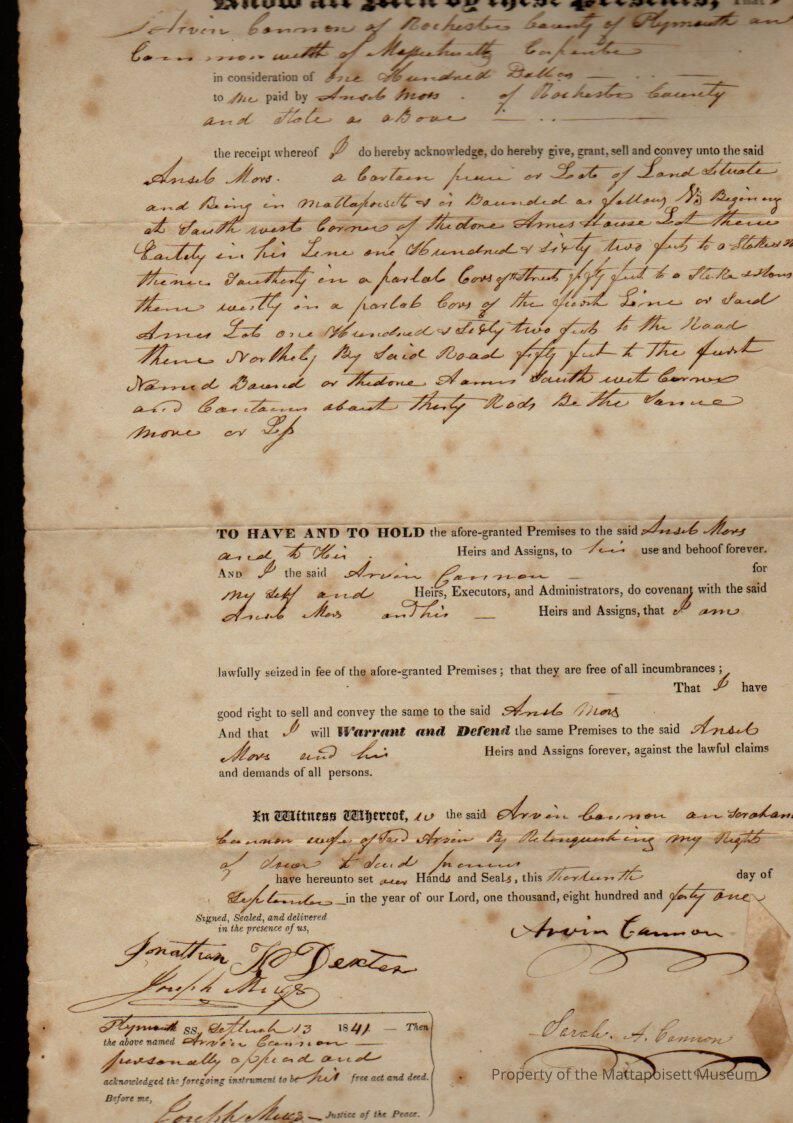 Know all Men by these Presents, That
I Arvin Cannon of Rochester County of Plymouth an
Commonwelth of Massachusetts Carpenter
in consideration of one Hundred Dollars
to me paid by Anseb Mors of Rochester County
and State as above
the receipt whereof I do hereby acknowledge, do hereby give, grant, sell and convey unto the said
Anseb Mors. a Certain piece or Lots of Land Situate
and Being in Mattapoisett & is Bounded as follows Beginning
at South west Corner of thedore Ames House Lot thence
Eastely in his Line one Hundred & sixty two feet to a Stake &
thence Southerly in a parlab Cors of Street fifty feet to a Stake & Stone
thence westly in a parlab Cors of the first Line or Said
Ames Lot one Hundred & Sixty two feet to the Road
thence Northely By Said Road fifty feet to the first
Named Bound or thedore Aames South west Corner
and Contains about thirty Rods Be the Same
more or Less
TO HAVE AND TO HOLD the afore-granted Premises to the said Anseb Mors
and to His Heirs and Assigns, to his use and behoof forever.
AND I the said Arvin Cannon for
my self and Heirs, Executors, and Administrators, do covenant with the said
Anseb Mors and his Heirs and Assigns, that I am
lawfully seized in fee of the afore-granted Premises; that they are free of all incumbrances;
That I have
good right to sell and convey the same to the said Anseb Mors
And that I will Warrant and Defend the same Premises to the said Anseb
Mors and his Heirs and Assigns forever, against the lawful claims
and demands of all persons.
In Witness Whereof, we the said Arvin Cannon an Sorah
Cannon wife of Said Arvin By Relinquishing my Right
of dower to Said premises
have hereunto set our Hands and Seals, this thirteenth day of
September in the year of our Lord, one thousand, eight hundred and forty one
Signed, Sealed, and delivered
in the presence of us,
Arvin Cannon
Jonathan H Dexter
Joseph Meigs
Plymouth SS. September 13 1841 — Then
the above named Arvin Cannon
personally appeard and
acknowledged the foregoing instrument to be his free act and deed.
Before me,
Joseph Meigs — Justice of the Peace.
Sarah A. Cannon
Property of the Mattapoisett Museum